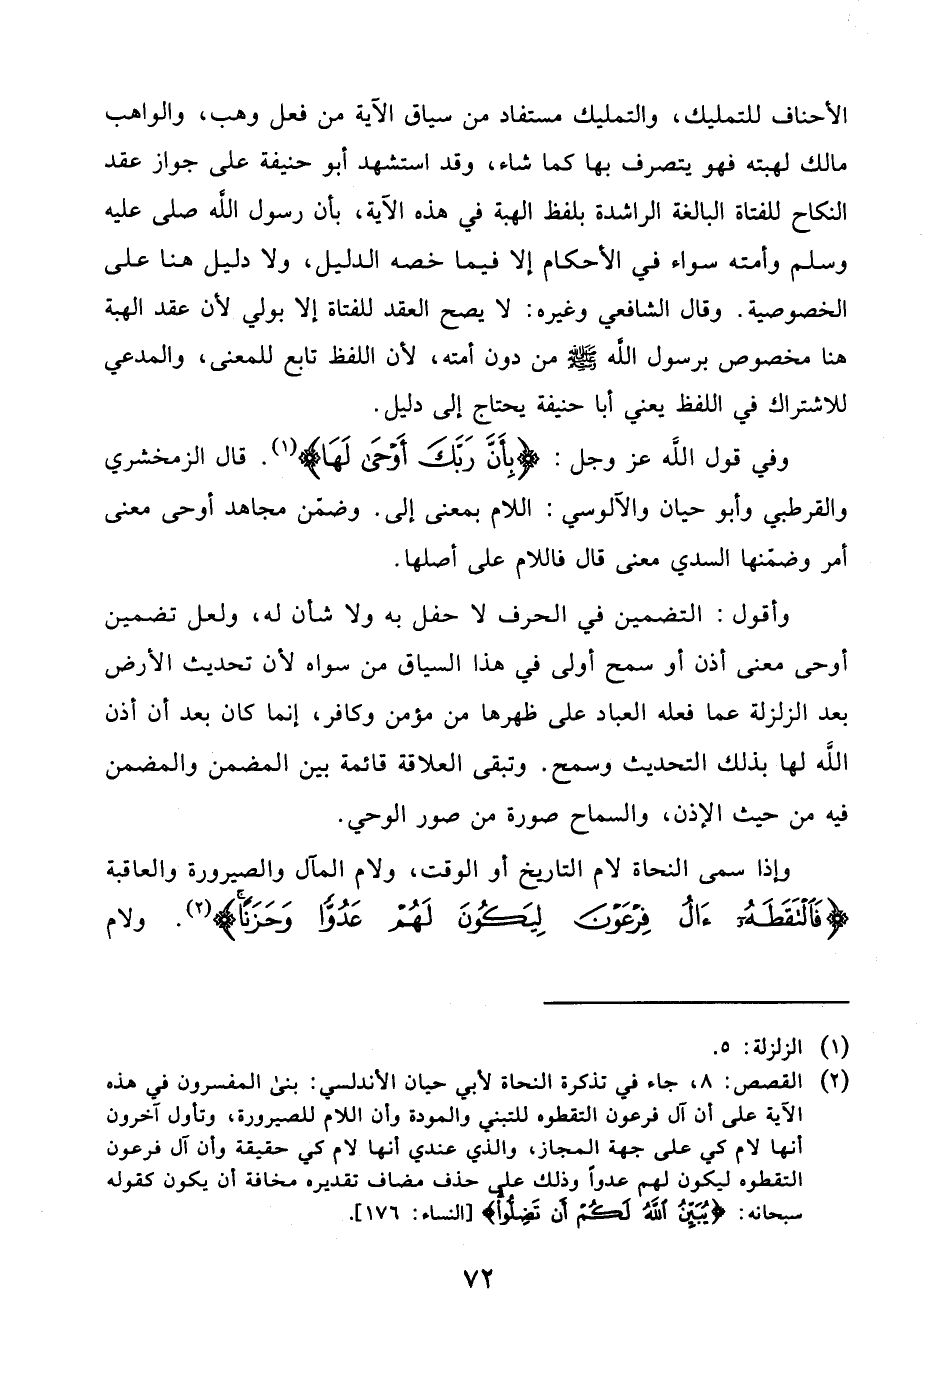 الأحناف للتمليك، والتمليك مستفاد من سياق الآية من فعل وهب، والواهب
مالك لهبته فهو يتصرف بها كما شاء، وقد استشهد أبو حنيفة على جواز عقد
النكاح للفتاة البالغة الراشدة بلفظ الهبة في هذه الآية، بأن رسول اللَّه صلى عليه
وسلم وأمته سواء في الأحكام إلا فيما خصه الدليل، ولا دليل هنا على
الخصوصية. وقال الشافعي وغيره: لا يصح العقد للفتاة إلا بولي لأن عقد الهبة
هنا مخصوص برسول اللَّه ﷺ من دون أمته، لأن اللفظ تابع للمعنى، والمدعي
للاشتراك في اللفظ يعني أبا حنيفة يحتاج إلى دليل.
وفي قول اللَّه عز وجل: ﴿بِأَنَّ رَبَّكَ أَوْحَىٰ لَهَا﴾(١). قال الزمخشري
والقرطبي وأبو حيان والآلوسي: اللام بمعنى إلى. وضمّن مجاهد أوحى معنى
أمر وضمّنها السدي معنى قال فاللام على أصلها.
وأقول: التضمين في الحرف لا حفل به ولا شأن له، ولعل تضمين
أوحى معنى أذن أو سمح أولى في هذا السياق من سواه لأن تحديث الأرض
بعد الزلزلة عما فعله العباد على ظهرها من مؤمن وكافر، إنما كان بعد أن أذن
اللَّه لها بذلك التحديث وسمح. وتبقى العلاقة قائمة بين المضمن والمضمن
فيه من حيث الإذن، والسماح صورة من صور الوحي.
وإذا سمى النحاة لام التاريخ أو الوقت، ولام المآل والصيرورة والعاقبة
﴿فَالْتَقَطَهُۥ ءَالُ فِرْعَوْنَ لِيَكُونَ لَهُمْ عَدُوًّا وَحَزَنًا ۗ﴾(٢). ولام
(١) الزلزلة: ٥.
(٢) القصص: ٨، جاء في تذكرة النحاة لأبي حيان الأندلسي: بنىٰ المفسرون في هذه
الآية على أن آل فرعون التقطوه للتبني والمودة وأن اللام للصيرورة، وتأول آخرون
أنها لام كي على جهة المجاز، والذي عندي أنها لام كي حقيقة وأن آل فرعون
التقطوه ليكون لهم عدواً وذلك على حذف مضاف تقديره مخافة أن يكون كقوله
سبحانه: ﴿يُبَيِّنُ اللَّهُ لَكُمْ أَن تَضِلُّوا﴾ [النساء: ١٧٦].
٧٢